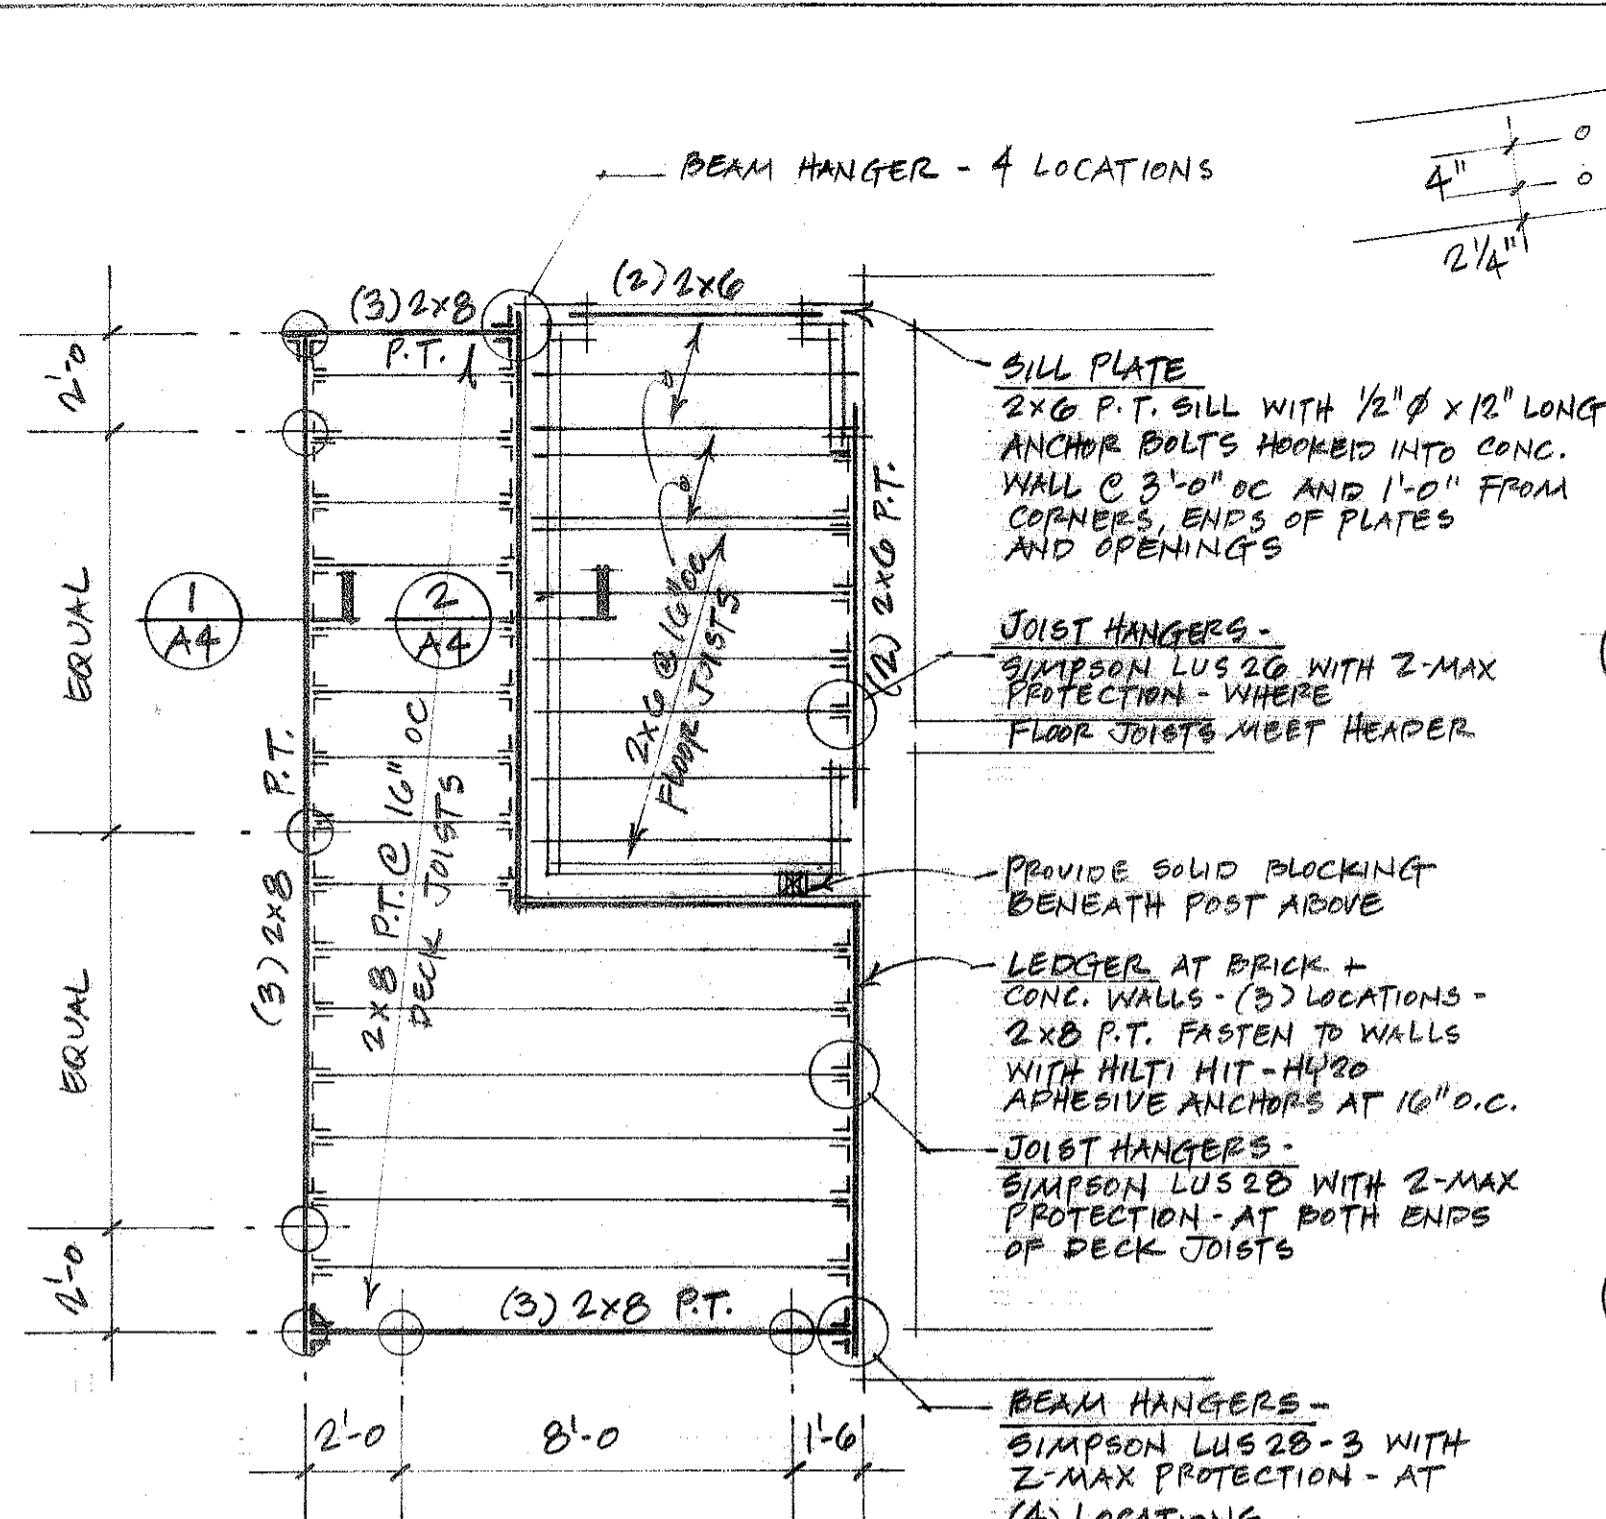 BEAM HANGER - 4 LOCATIONS
4"
2 1/4"
(3) 2x8
P.T.
(2) 2x6
2'-0
EQUAL
EQUAL
2'-0
1
A4
2
A4
(3) 2x8 P.T.
2x8 P.T. @ 16" OC
DECK JOISTS
2x6 @ 16" OC
FLOOR JOISTS
(2) 2x6 P.T.
SILL PLATE
2x6 P.T. SILL WITH 1/2"Ø x 12" LONG
ANCHOR BOLTS HOOKED INTO CONC.
WALL @ 3'-0" OC AND 1'-0" FROM
CORNERS, ENDS OF PLATES
AND OPENINGS
JOIST HANGERS -
SIMPSON LUS 26 WITH Z-MAX
PROTECTION - WHERE
FLOOR JOISTS MEET HEADER
PROVIDE SOLID BLOCKING
BENEATH POST ABOVE
LEDGER AT BRICK +
CONC. WALLS - (3) LOCATIONS -
2x8 P.T. FASTEN TO WALLS
WITH HILTI HIT-HY20
ADHESIVE ANCHORS AT 16" O.C.
JOIST HANGERS -
SIMPSON LUS 28 WITH Z-MAX
PROTECTION - AT BOTH ENDS
OF DECK JOISTS
(3) 2x8 P.T.
2'-0
8'-0
1'-6
BEAM HANGERS -
SIMPSON LUS 28-3 WITH
Z-MAX PROTECTION - AT
(4) LOCATIONS